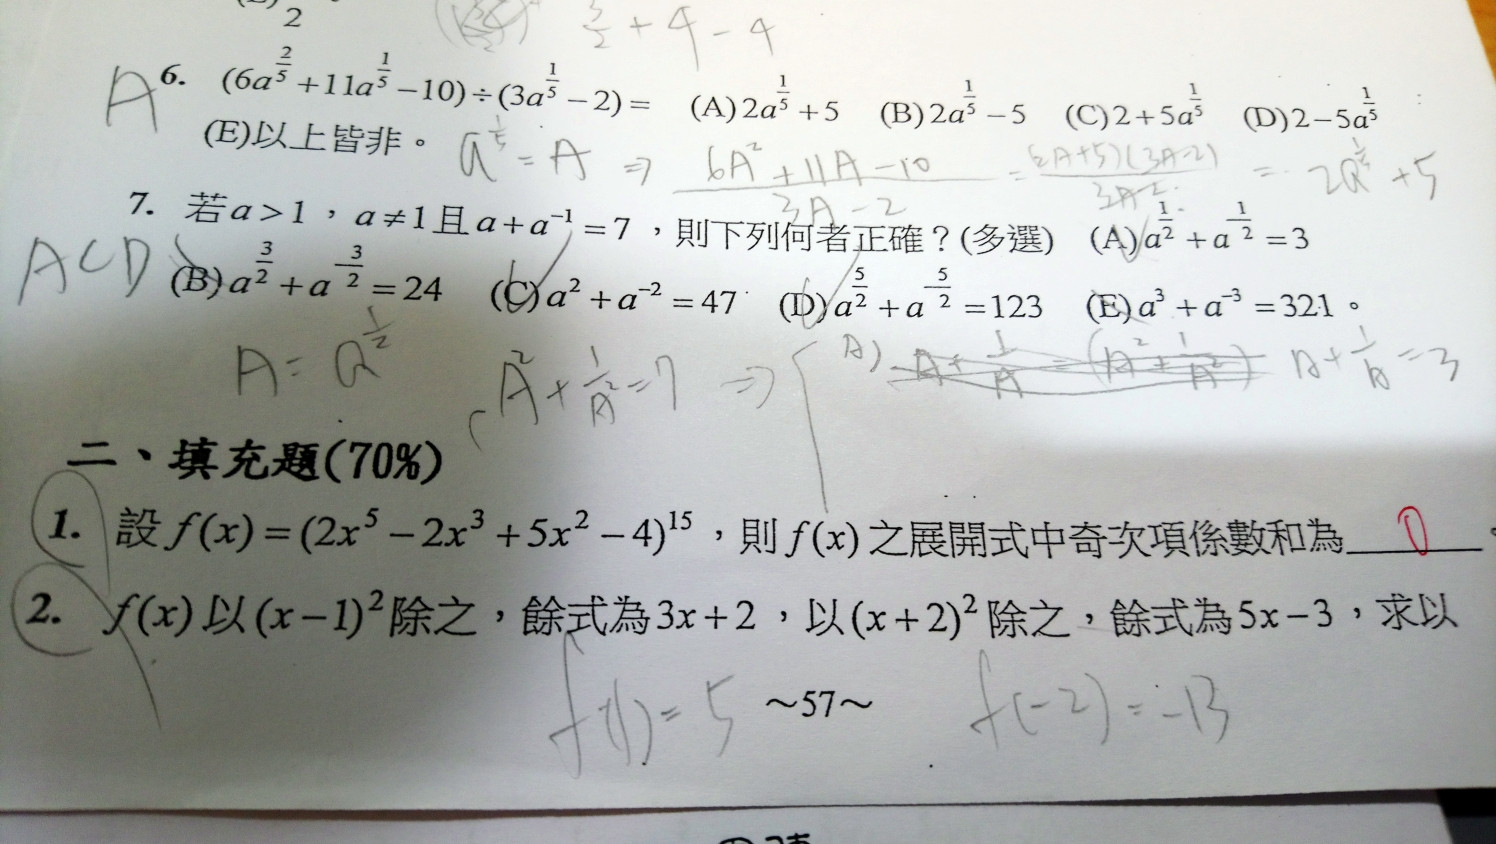 2
3/2 + 9 - 4
A 6. (6a^{2/5}+11a^{1/5}-10)÷(3a^{1/5}-2)= (A)2a^{1/5}+5 (B)2a^{1/5}-5 (C)2+5a^{1/5} (D)2-5a^{1/5}
(E)以上皆非。
a^{1/5} = A ⇒ (6A²+11A-10)/(3A-2) = (2A+5)(3A-2)/(3A-2) = 2a^{1/5}+5
7. 若a>1,a≠1且a+a^{-1}=7,則下列何者正確?(多選) (A)a^{1/2}+a^{-1/2}=3
ACD (B)a^{3/2}+a^{-3/2}=24 (C)a²+a^{-2}=47 (D)a^{5/2}+a^{-5/2}=123 (E)a³+a^{-3}=321。
A = a^{1/2} A²+1/A²=7 ⇒ A) A+1/A = (A²+1/A²) A+1/A=3
二、填充題(70%)
1. 設f(x)=(2x⁵-2x³+5x²-4)^{15},則f(x)之展開式中奇次項係數和為 0 。
2. f(x)以(x-1)²除之,餘式為3x+2,以(x+2)²除之,餘式為5x-3,求以
f(1)=5 ~57~ f(-2)=-13